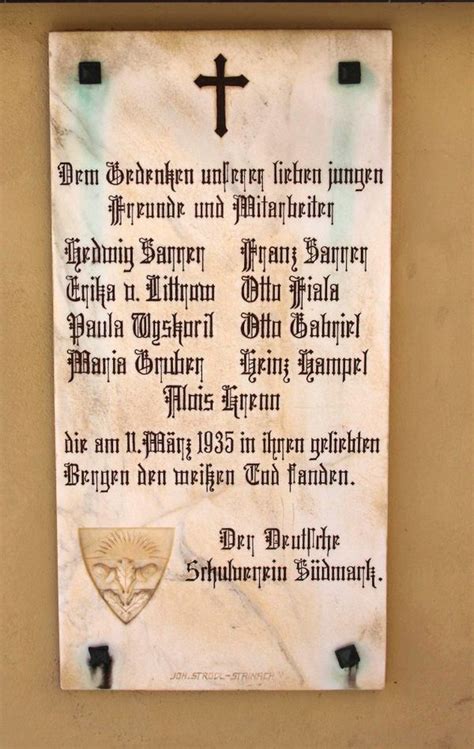 Dem Gedenken unserer lieben jungen
Freunde und Mitarbeiter
Hedwig Sarrer Franz Sarrer
Erika v. Littrow Otto Fiala
Paula Wyskoril Otto Gabriel
Maria Gruber Heinz Hampel
Alois Krenn
die am 11. März 1935 in ihren geliebten
Bergen den weißen Tod fanden.
Der Deutsche
Schulverein Südmark.
JOH. STRODL-STAINACH